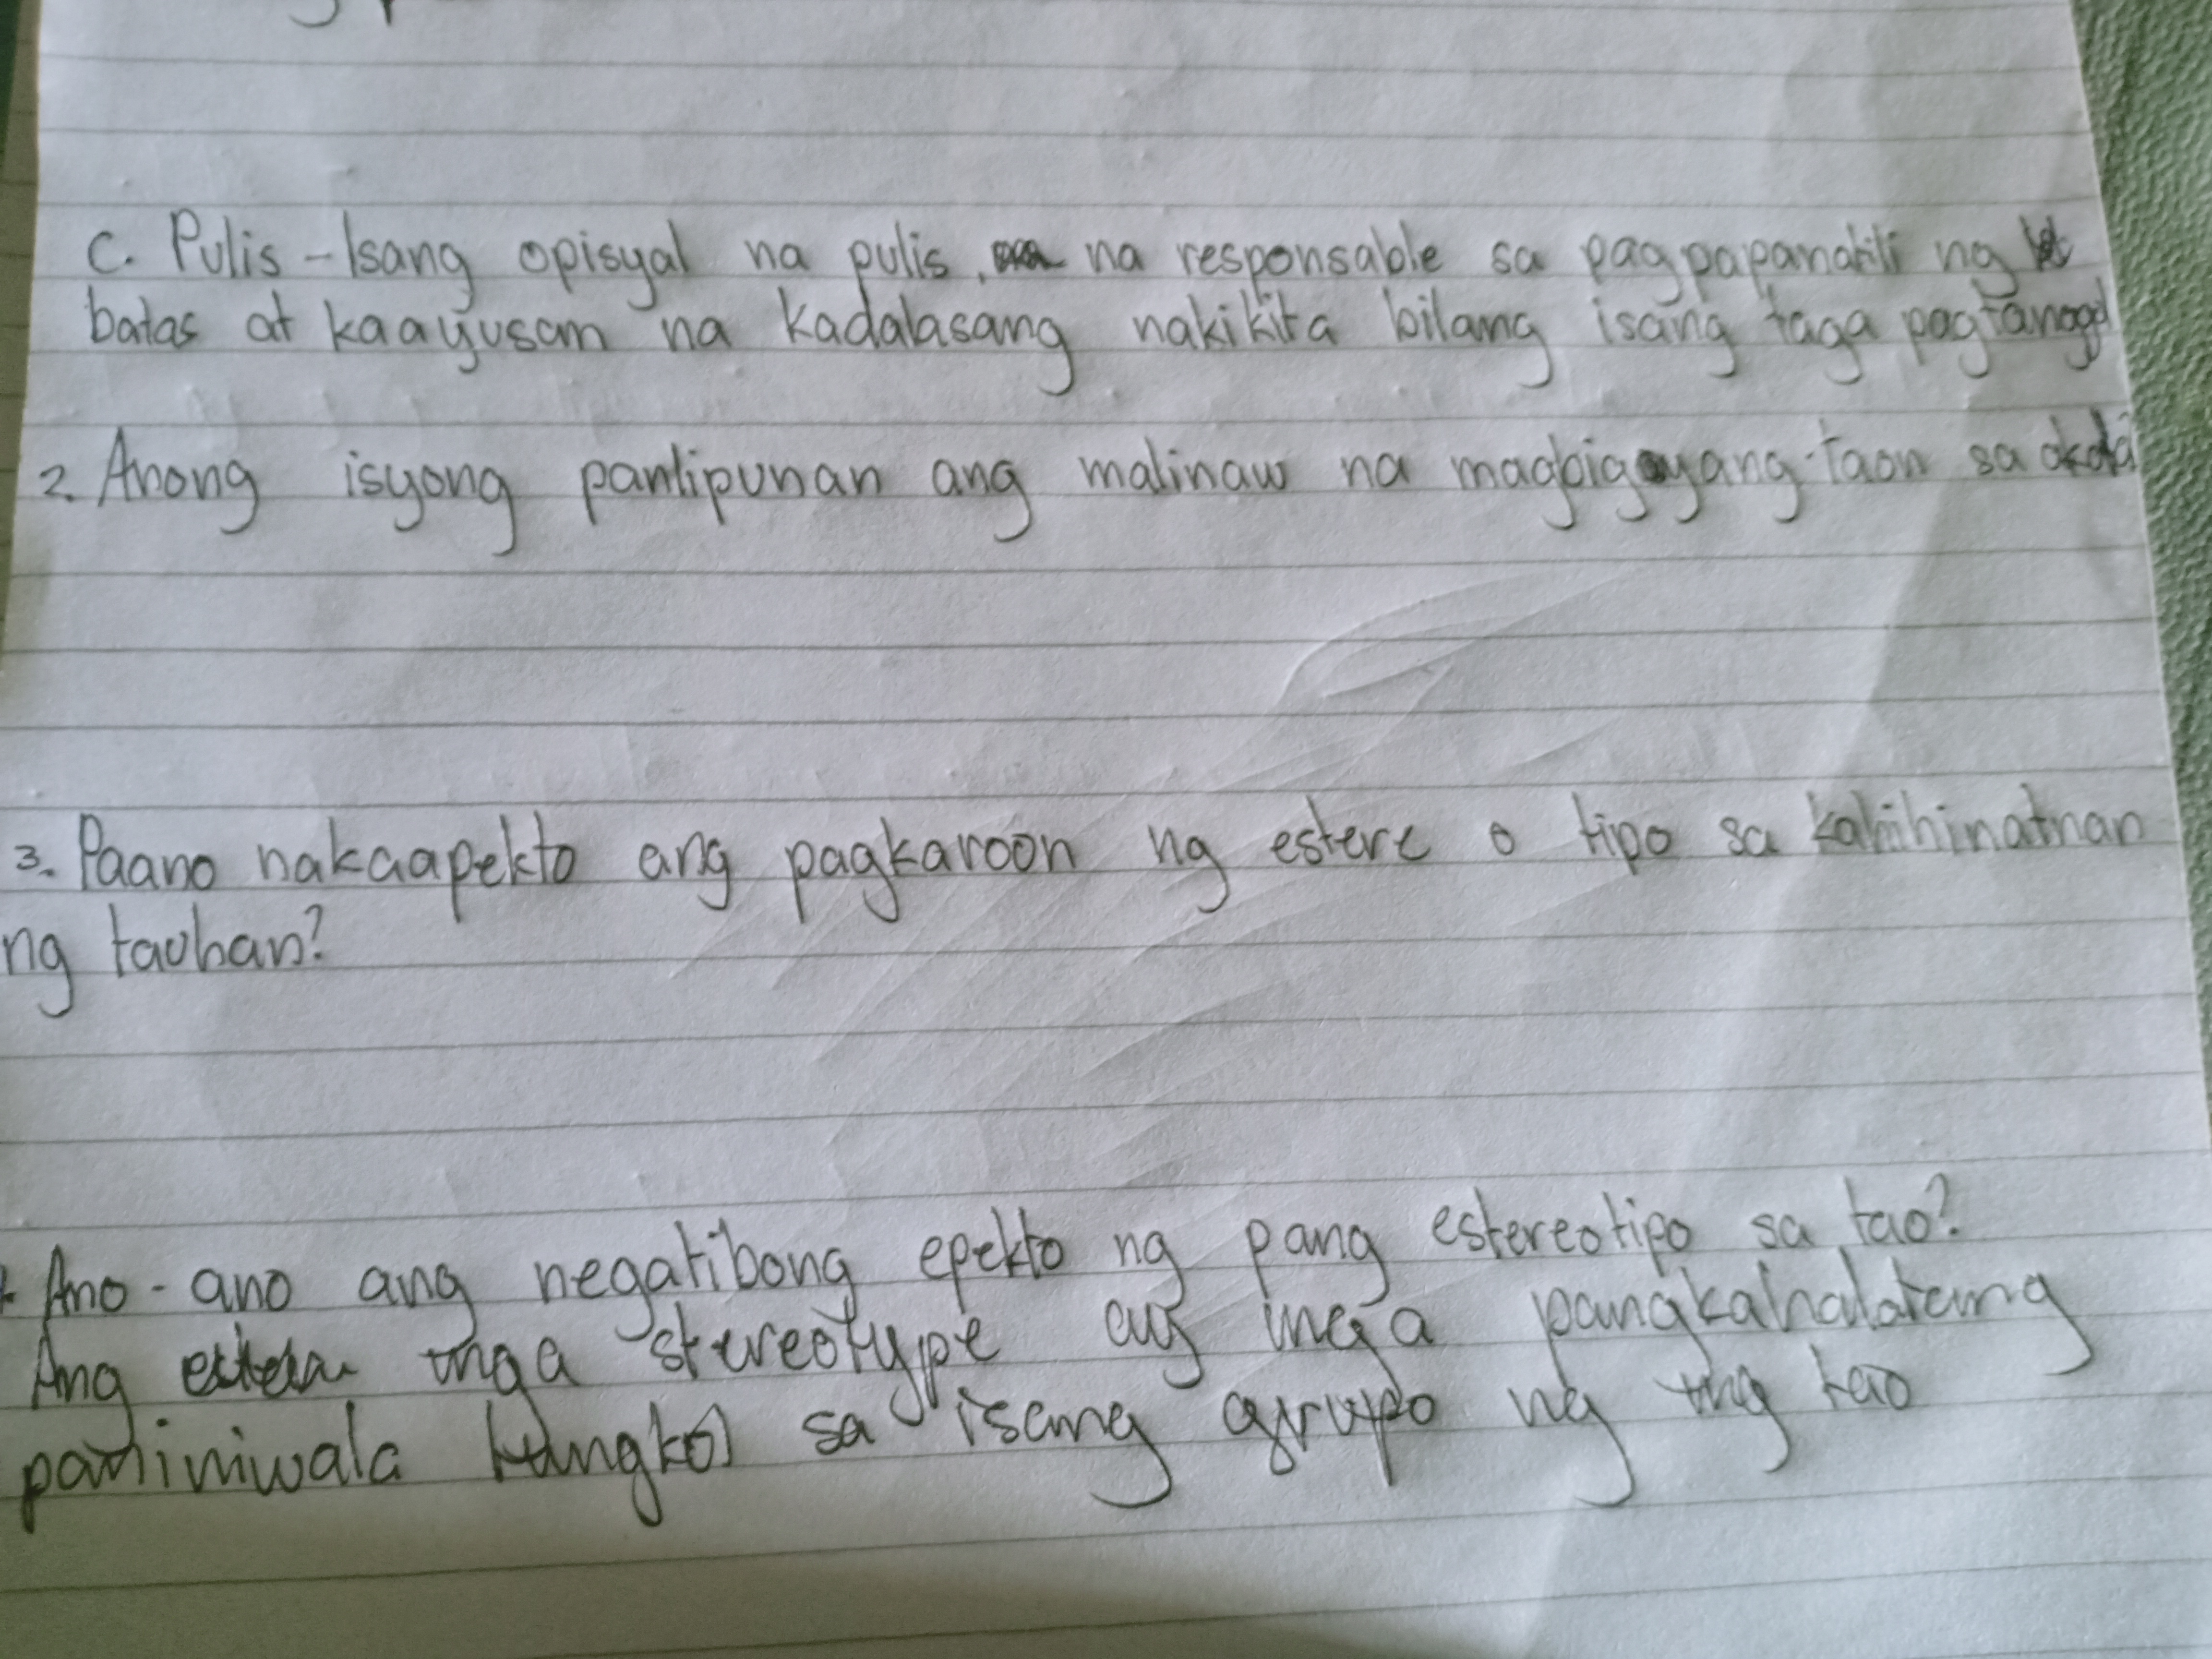 C. Pulis - Isang opisyal na pulis, na responsable sa pagpapanatili ng
batas at kaayusan na kadalasang nakikita bilang isang taga pagtanggol
2. Anong isyong panlipunan ang malinaw na magbigayang-taon sa
3. Paano nakaapekto ang pagkaroon ng estere o tipo sa kahihinatnan
ng tauhan?
Ano-ano ang negatibong epekto ng pang estereotipo sa tao?
Ang mga stereotype ay mga pangkahalatang
paniniwala tungkol sa isang grupo ng mg tao